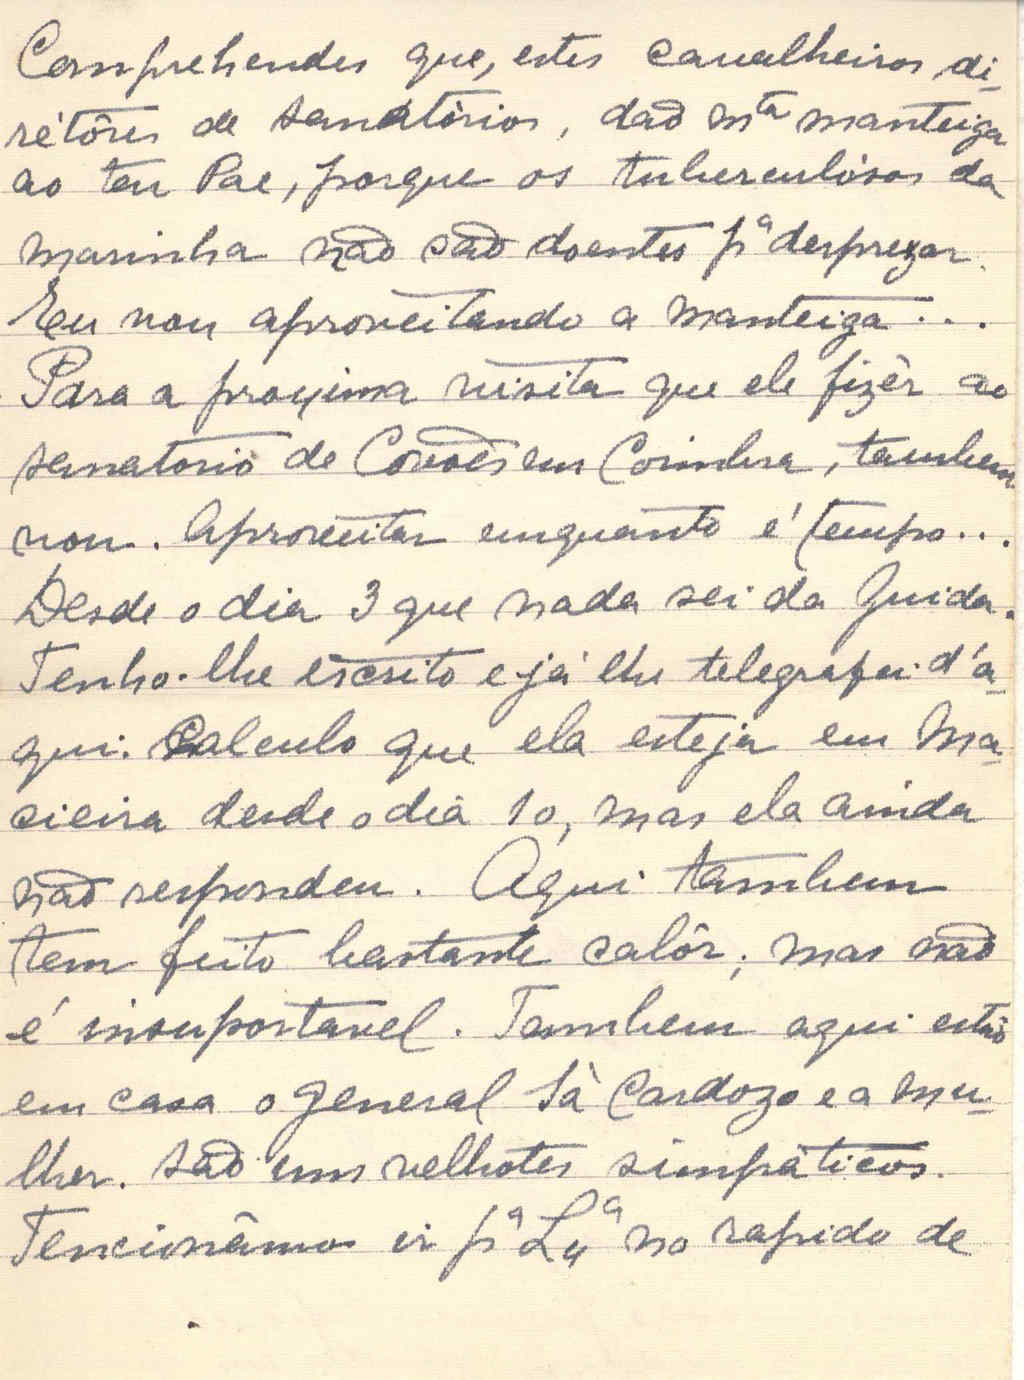 Comprehendes que, estes cavalheiros di-
rétôres de sanatórios, dão mta manteiga
ao teu Pae, porque os tuberculósos da
marinha não são doentes pª desprezar.
Eu vou aproveitando a manteiga...
Para a proxima visita que ele fizér ao
sanatorio de Covões em Coimbra, tambem
vou. Aproveitar emquanto é tempo...
Desde o dia 3 que nada sei da Guida.
Tenho-lhe escrito e já lhe telegrafei d'a-
qui. Calculo que ela esteja em Ma-
cieira desde o dia 10, mas ela ainda
não respondeu. Aqui tambem
tem feito bastante calôr, mas não
é insuportavel. Tambem aqui estão
em casa o general Sá Cardozo e a mu-
lher. São uns velhotes simpáticos.
Tencionâmos ir pª Lxª no rapido de